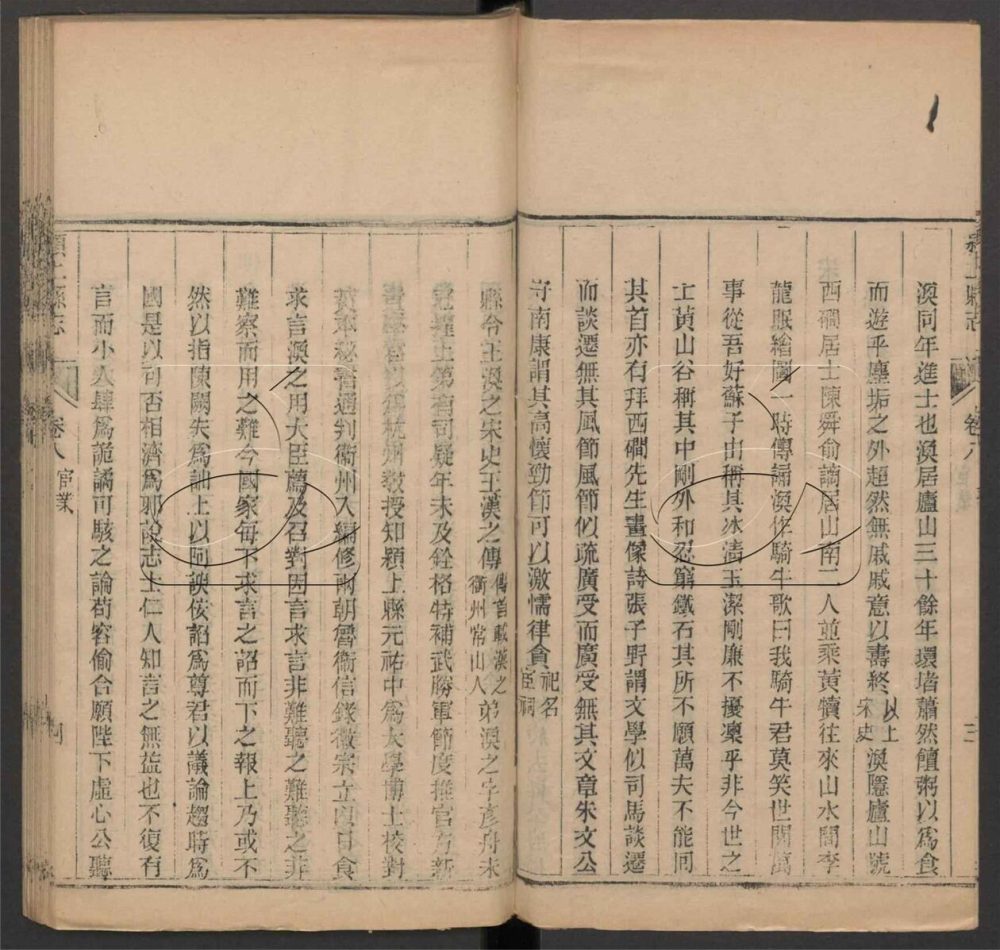 渙同年進士也渙居廬山三十餘年環堵蕭然饘粥以爲食
而遊乎塵垢之外超然無戚戚意以壽終以上宋史渙隱廬山號
西磵居士陳舜俞謫居山南二人並乘黃犢往來山水間李
龍眠繪圖一時傳誦渙作騎牛歌曰我騎牛君莫笑世間萬
事從吾好蘇子由稱其冰淸玉潔剛廉不撓凜乎非今世之
士黃山谷稱其中剛外和忍窮鐵石其所不願萬夫不能囘
其首亦有拜西磵先生畫像詩張子野謂文學似司馬談遷
而談遷無其風節風節似疏廣受而廣受無其文章朱文公
守南康謂其高懷勁節可以激懦律貪祀名宦祠
縣令王渙之宋史王漢之傳傳首載漢之衢州常山人弟渙之字彥舟未
冠擢上第有司疑年未及銓格特補武勝軍節度推官方新
置學官以爲杭州敎授知潁上縣元祐中爲太學博士校對
黃本秘書通判衞州入編修兩朝魯衞信錄徽宗立以日食
求言渙之用大臣薦及召對因言求言非難聽之難聽之非
難察而用之難今國家每下求言之詔而下之報上乃或不
然以指陳闕失爲訕上以阿諛佞諂爲尊君以議論趨時爲
國是以可否相濟爲邪說志士仁人知言之無益也不復有
言而小人肆爲詭譎可駭之論苟容偷合願陛下虛心公聽
潁上縣志
卷八
宦業